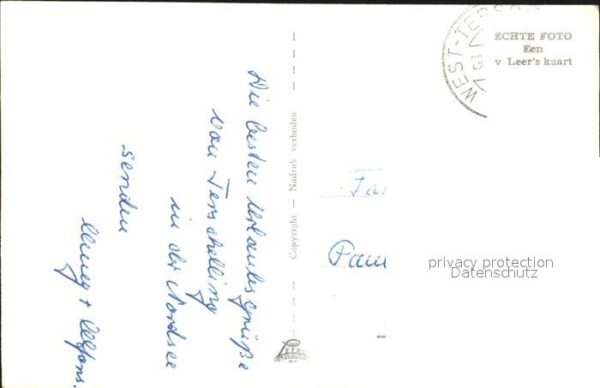 Die besten Urlaubsgrüße
von Terschelling
in der Nordsee
senden
+ Alfons.
Copyright — Nadruk verboden
LEER'S
WEST-TERSC
ECHTE FOTO
Een
v Leer's kaart
Fa
Pau
privacy protection
Datenschutz